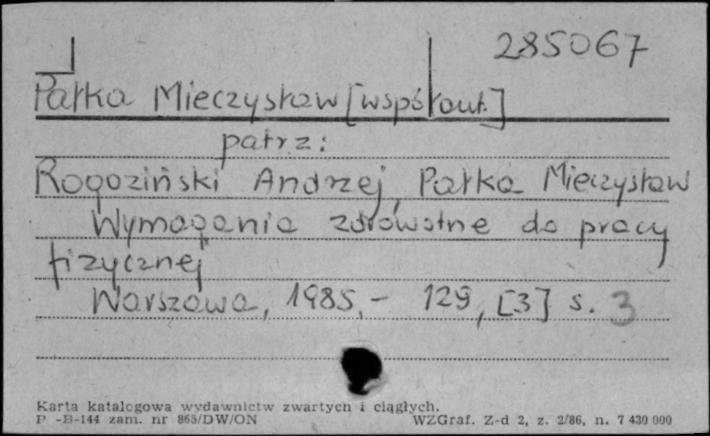 285067
Pałka Mieczysław [współaut.]
patrz:
Rogoziński Andrzej, Pałka Mieczysław
Wymagania zdrowotne do pracy
fizycznej
Warszawa, 1985, - 129, [3] s. 3
Karta katalogowa wydawnictw zwartych i ciągłych.
P -B-144 zam. nr 865/DW/ON WZGraf. Z-d 2, z. 2/86, n. 7 430 000